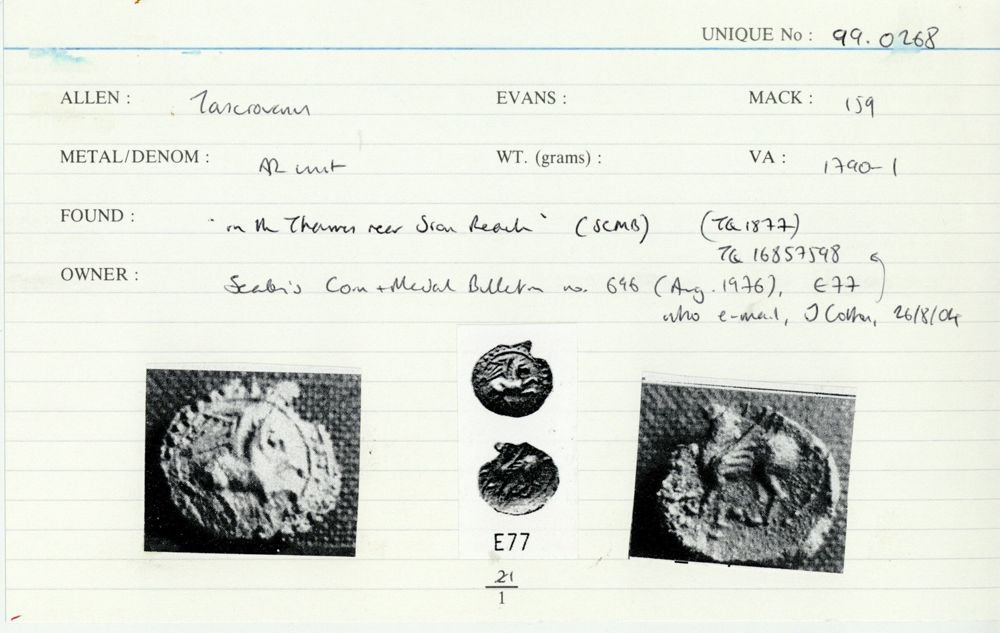 UNIQUE No : 99.0268
ALLEN : Tasciovanus EVANS : MACK : 159
METAL/DENOM : AR unit WT. (grams) : VA : 1790-1
FOUND : "in the Thames near Sion Reach" (SCMB) (TQ 1877)
TQ 16857598
OWNER : Seaby's Coin + Medal Bulletin no. 696 (Aug. 1976), E77
info e-mail, J Cotton, 26/8/04
E77
21
1